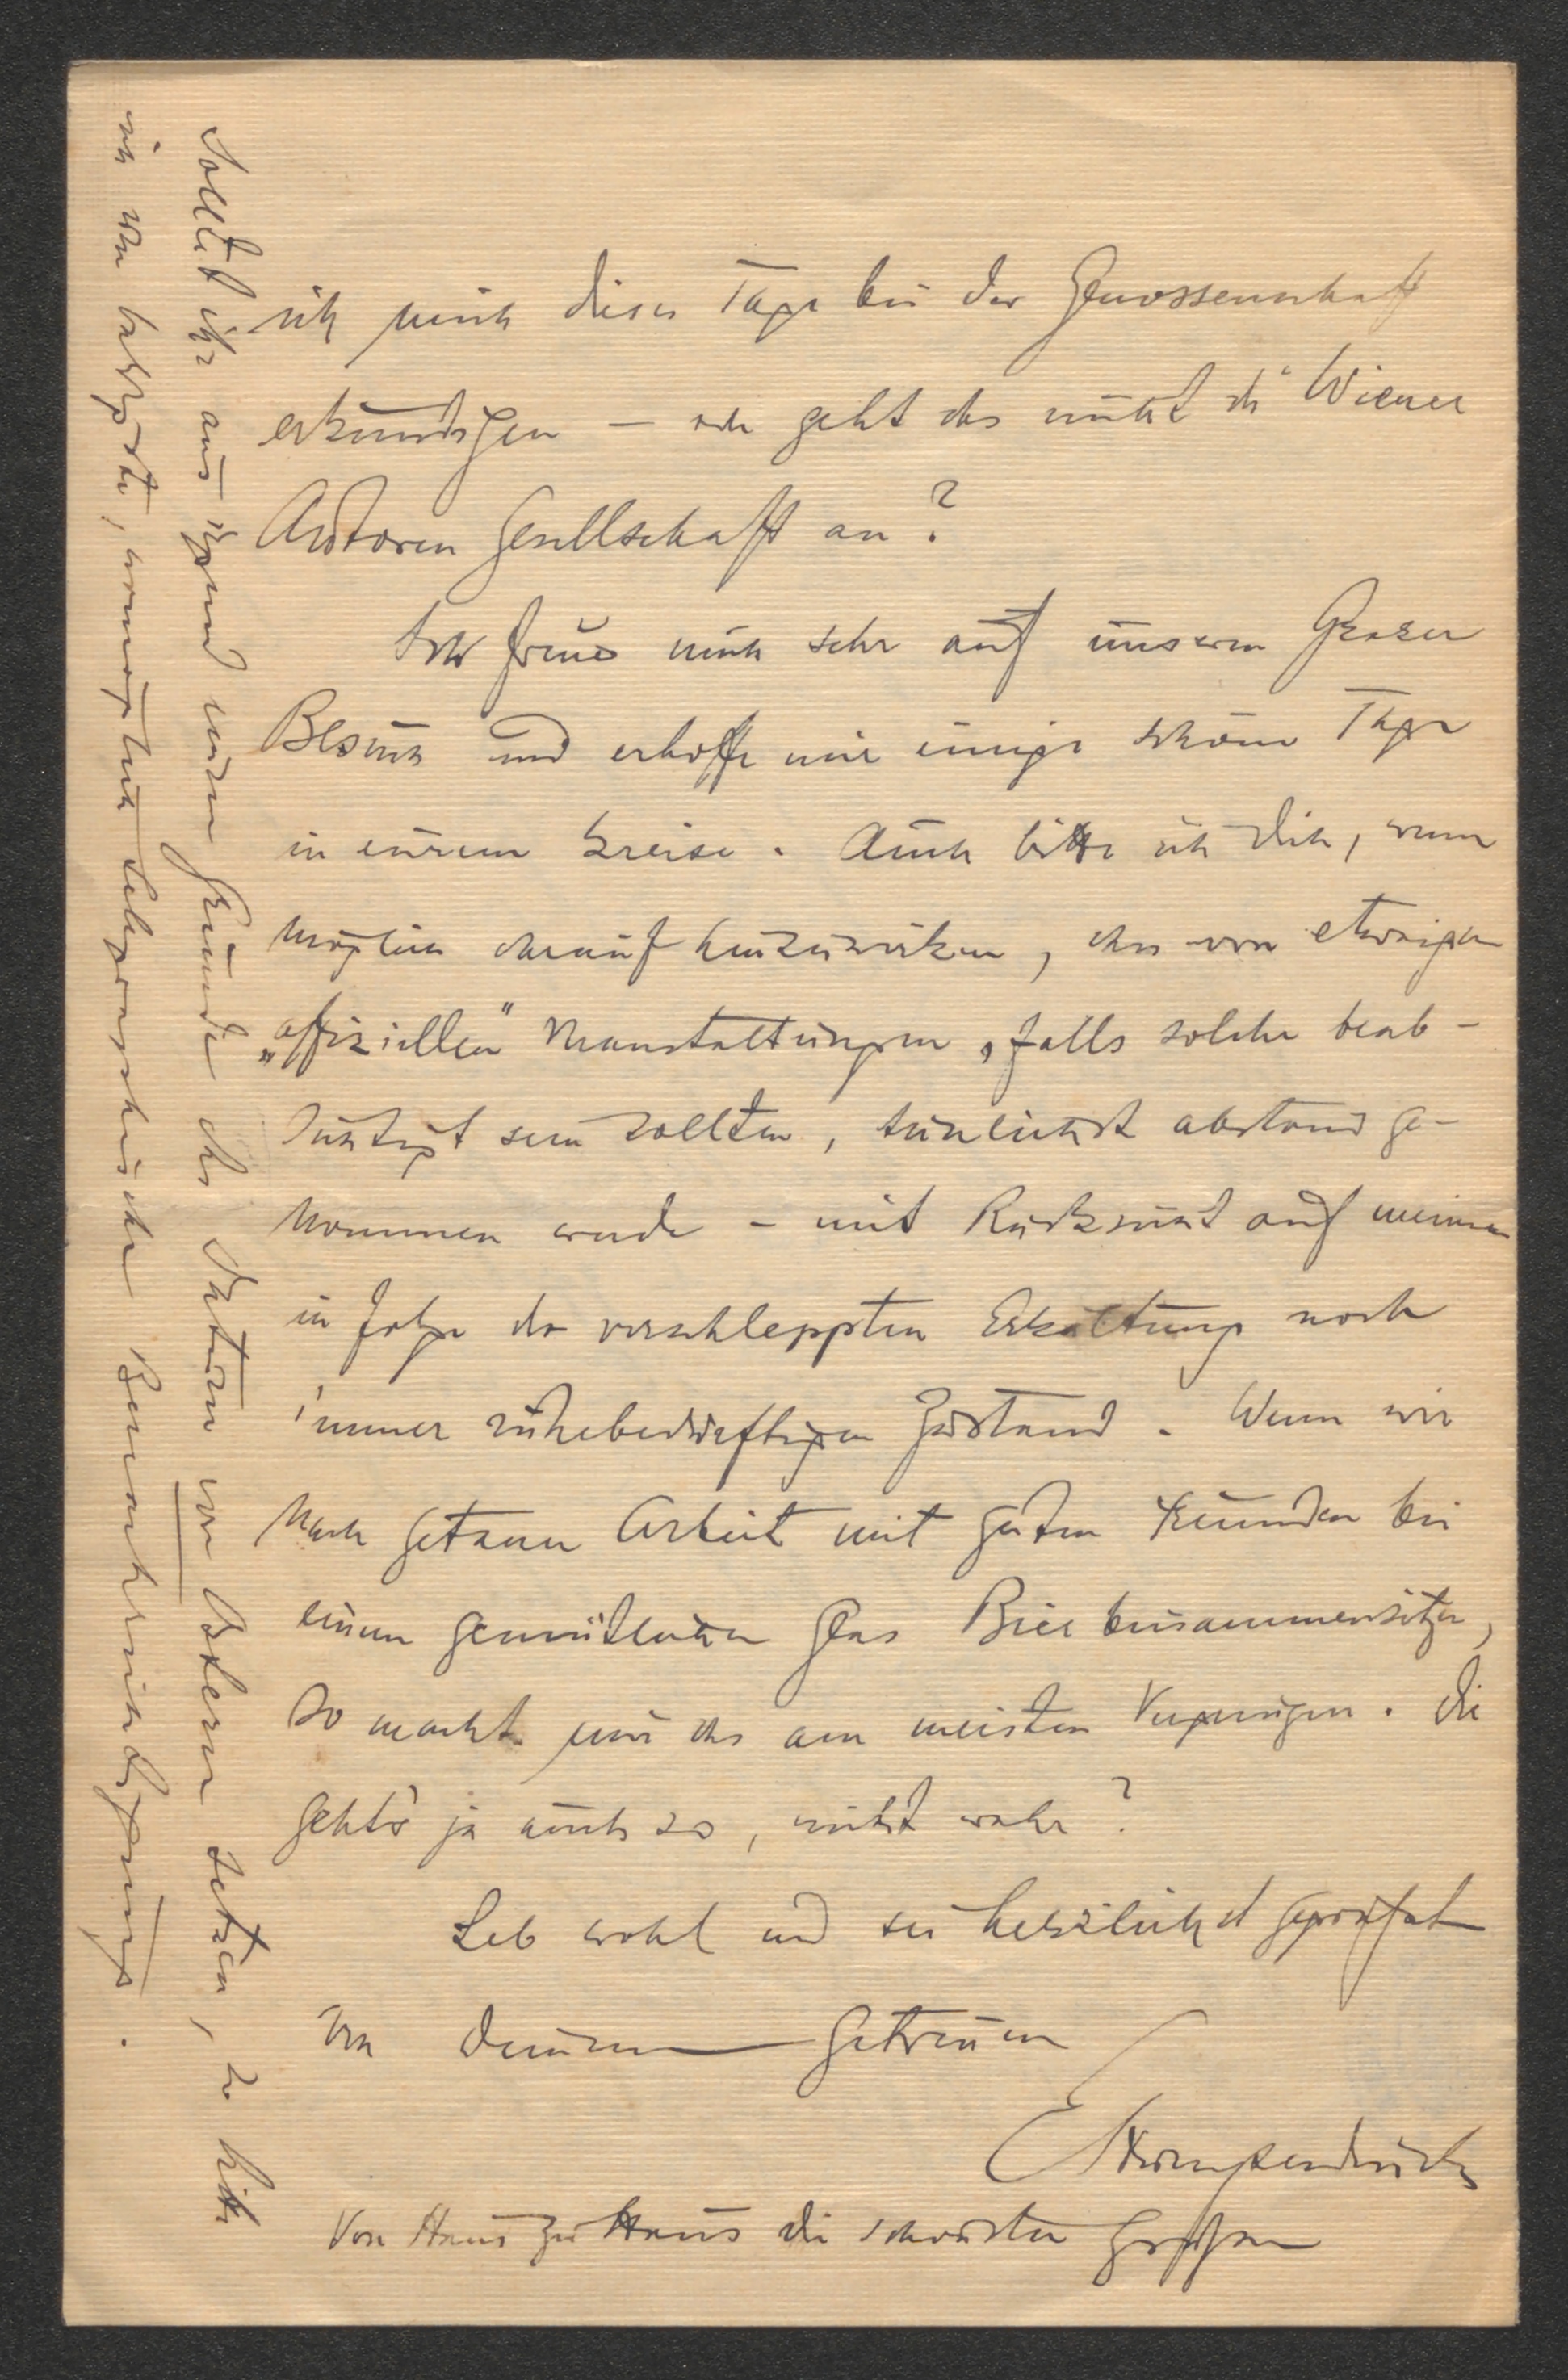 ich mich dieser Tage bei der Genossenschaft
erkundigen – oder geht das nicht die Wiener
Autoren Gesellschaft an?
Ich freue mich sehr auf unseren Grazer
Besuch und erhoffe mir einige schöne Tage
in eurem Kreise. Auch bitte ich Dich, wenn
möglich darauf hinzuwirken, das von etwaigen
„offiziellen" Veranstaltungen, falls solche beab-
sichtigt sein sollten, tunlichst abstand ge-
nommen werde – mit Rücksicht auf meinen
in Folge der verschleppten Erkältung noch
immer ruhebedürftigen Zustand. Wenn wir
nach getaner Arbeit mit guten Freunden bei
einem gemütlichen Glas Bier beisammensitzen,
so macht mir das am meisten Vergnügen. Dir
geht's ja auch so, nicht wahr?
Leb wohl und sei herzlichst gegrüßt
von Deinem getreuen
EHumperdinck
Von Haus zu Haus die schönsten Grüße
Solltet ihr aus irgend einem Grunde das Datum vor Ostern setzen, so bitte
ich um baldigste, womöglich telegraphische Benachrichtigung.